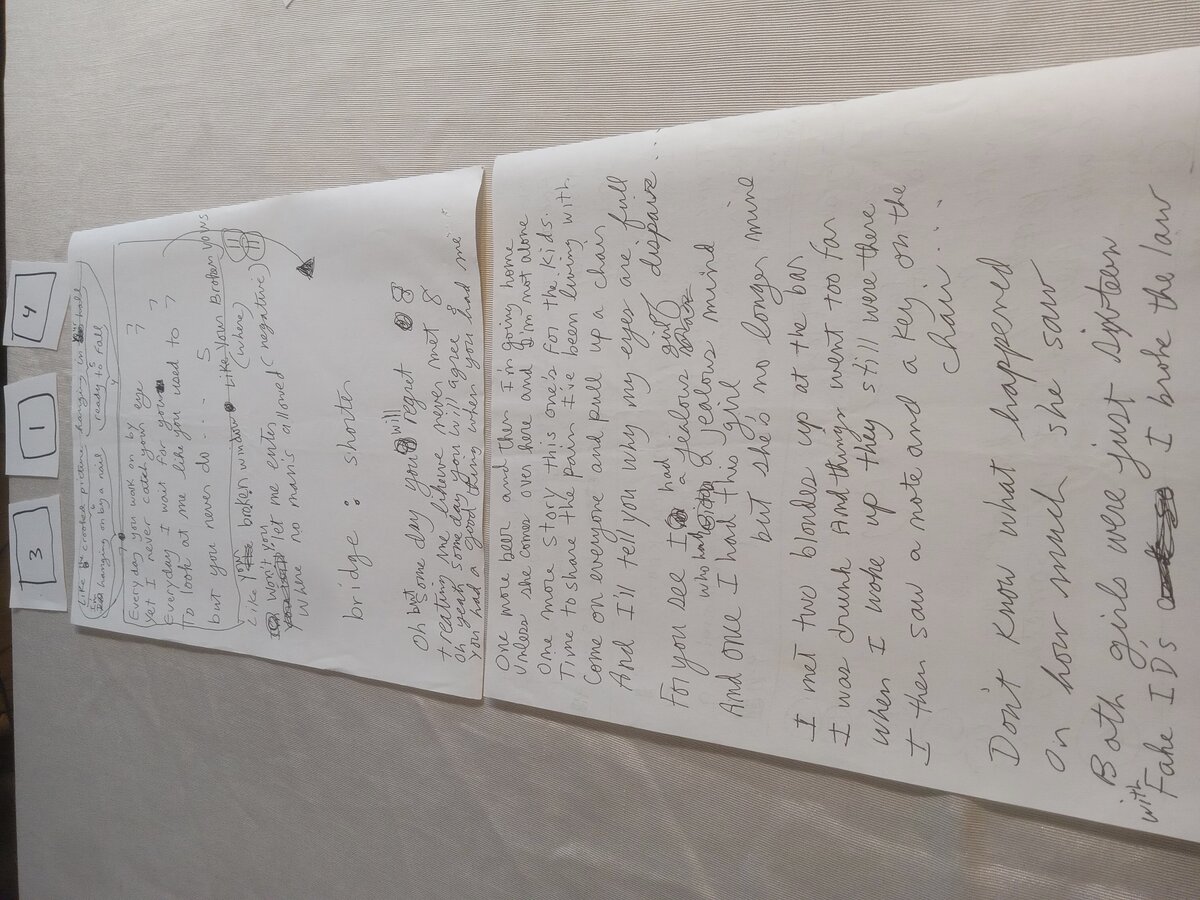 4
1
3
Like a crooked picture danging in hall
I'm hanging on by a nail (ready to fall)
Every day you walk on by 7
Yet I never catch your eye 7
Everyday I wait for you 7
To look at me like you used to 7
but you never do... 5
Like your Broken vows
Like your broken window (where)
won't you let me enter (negative)
Where no man's allowed
bridge: shorter
Oh but some day you will regret 8
treating me like we never met 8
oh yeah some day you will agree 8
you had a good thing when you had me...
One more beer and then I'm going home
Unless she comes over here and I'm not alone
One more story this one's for the kids.
Time to share the pain I've been living with.
Come on everyone and pull up a chair
And I'll tell you why my eyes are full
dispair...
For you see I had a jealous girl
who had a jealous mind
And one I had this girl
but she's no longer mine
I met two blondes up at the bar
I was drunk And things went too far
When I woke up they still were there
I then saw a note and a key on the
chair...
Don't know what happened
On how much she saw
Both girls were just sixteen
with Fake ID's I broke the law